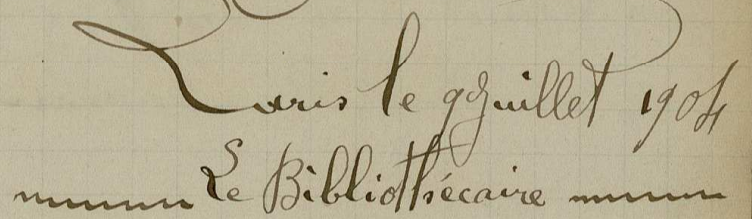 Paris le 9 Juillet 1904
Le Bibliothécaire